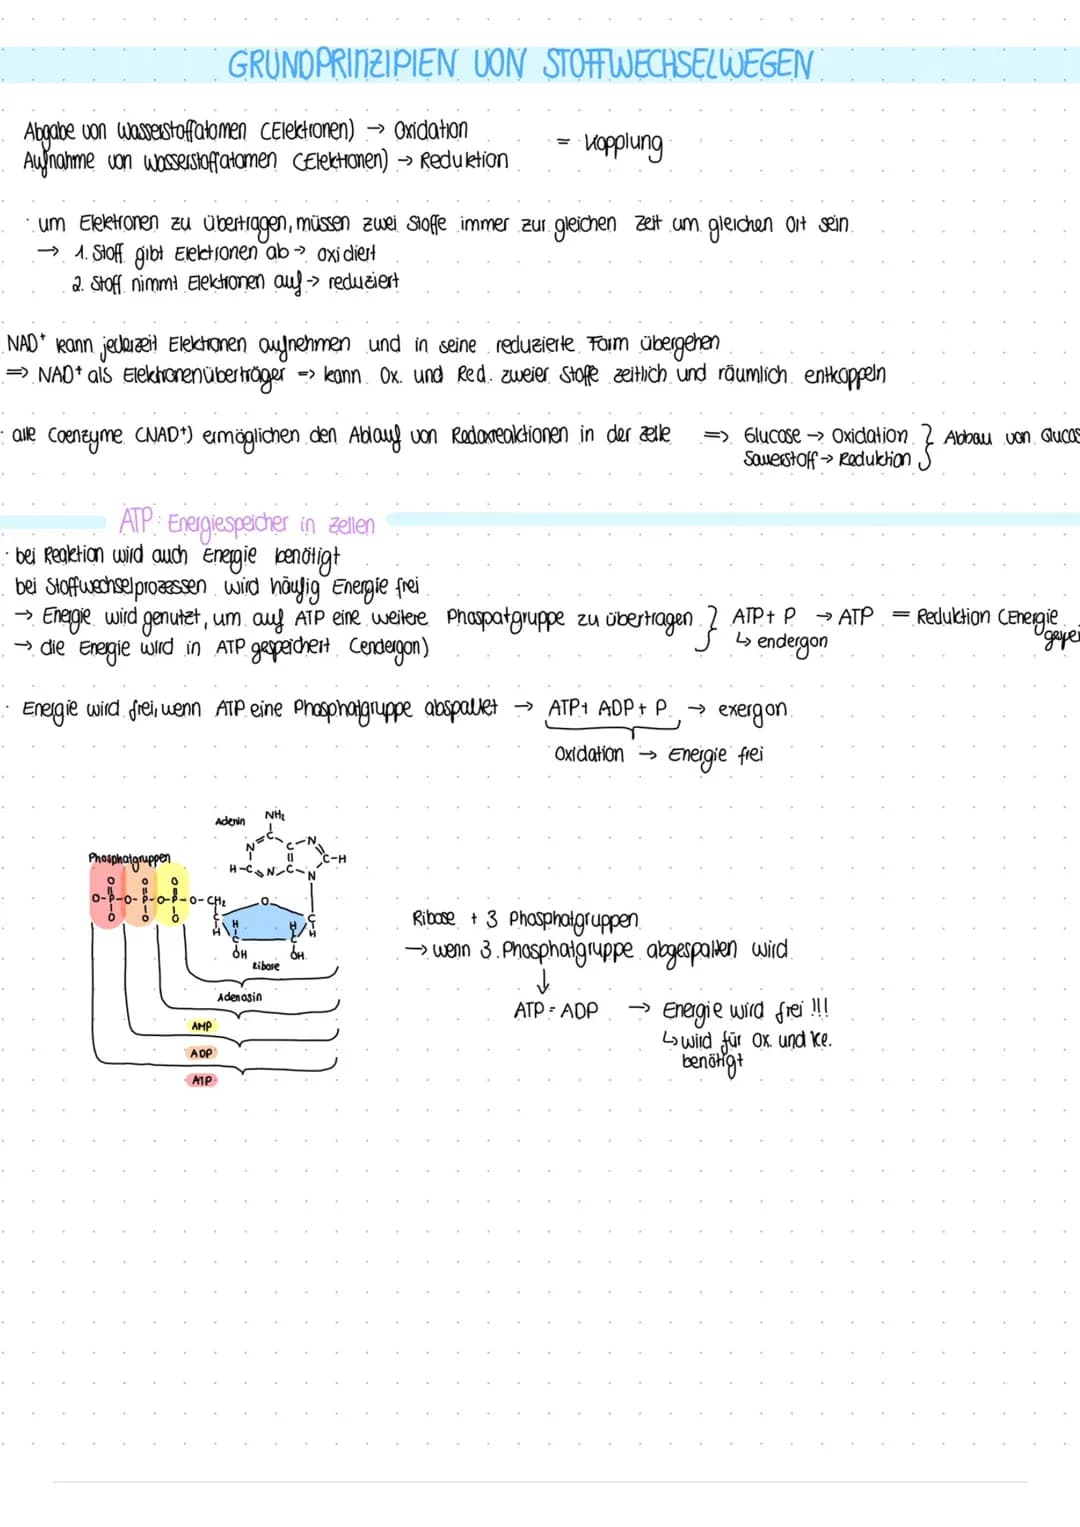 GRUNDPRINZIPIEN VON STOFFWECHSELWEGEN
Abgabe von Wasserstoffatomen (Elektronen) → Oxidation
Aufnahme von Wasserstoffatomen (Elektronen) → Reduktion
= Kopplung
· um Elektronen zu übertragen, müssen zwei Stoffe immer zur gleichen Zeit am gleichen Ort sein
→ 1. Stoff gibt Elektronen ab → oxidiert
2. Stoff nimmt Elektronen auf → reduziert
NAD⁺ kann jederzeit Elektronen aufnehmen und in seine reduzierte Form übergehen
⇒ NAD⁺ als Elektronenüberträger => kann Ox. und Red. zweier Stoffe zeitlich und räumlich entkoppeln
· alle Coenzyme (NAD⁺) ermöglichen den Ablauf von Redoxreaktionen in der Zelle => Glucose → Oxidation } Abbau von Glucos
Sauerstoff → Reduktion
ATP: Energiespeicher in Zellen
· bei Reaktion wird auch Energie benötigt
bei Stoffwechselprozessen wird häufig Energie frei
→ Energie wird genutzt, um auf ATP eine weitere Phospatgruppe zu übertragen } ATP + P → ATP = Reduktion (Energie
→ die Energie wird in ATP gespeichert (endergon) ↳ endergon
· Energie wird frei, wenn ATP eine Phosphatgruppe abspaltet → ATP+ ADP + P → exergon
Oxidation → Energie frei
Adenin NH₂
N C C N
C-H
Phosphatgruppen
H-C N C N
O O O
O-P-O-P-O-P-O-CH₂ O
O O O
C H H C
H C C H
OH OH
Ribose
Adenosin
AMP
ADP
ATP
Ribose + 3 Phosphatgruppen
→ wenn 3. Phosphatgruppe abgespalten wird
↓
ATP = ADP → Energie wird frei !!!
↳ wird für Ox. und Re.
benötigt